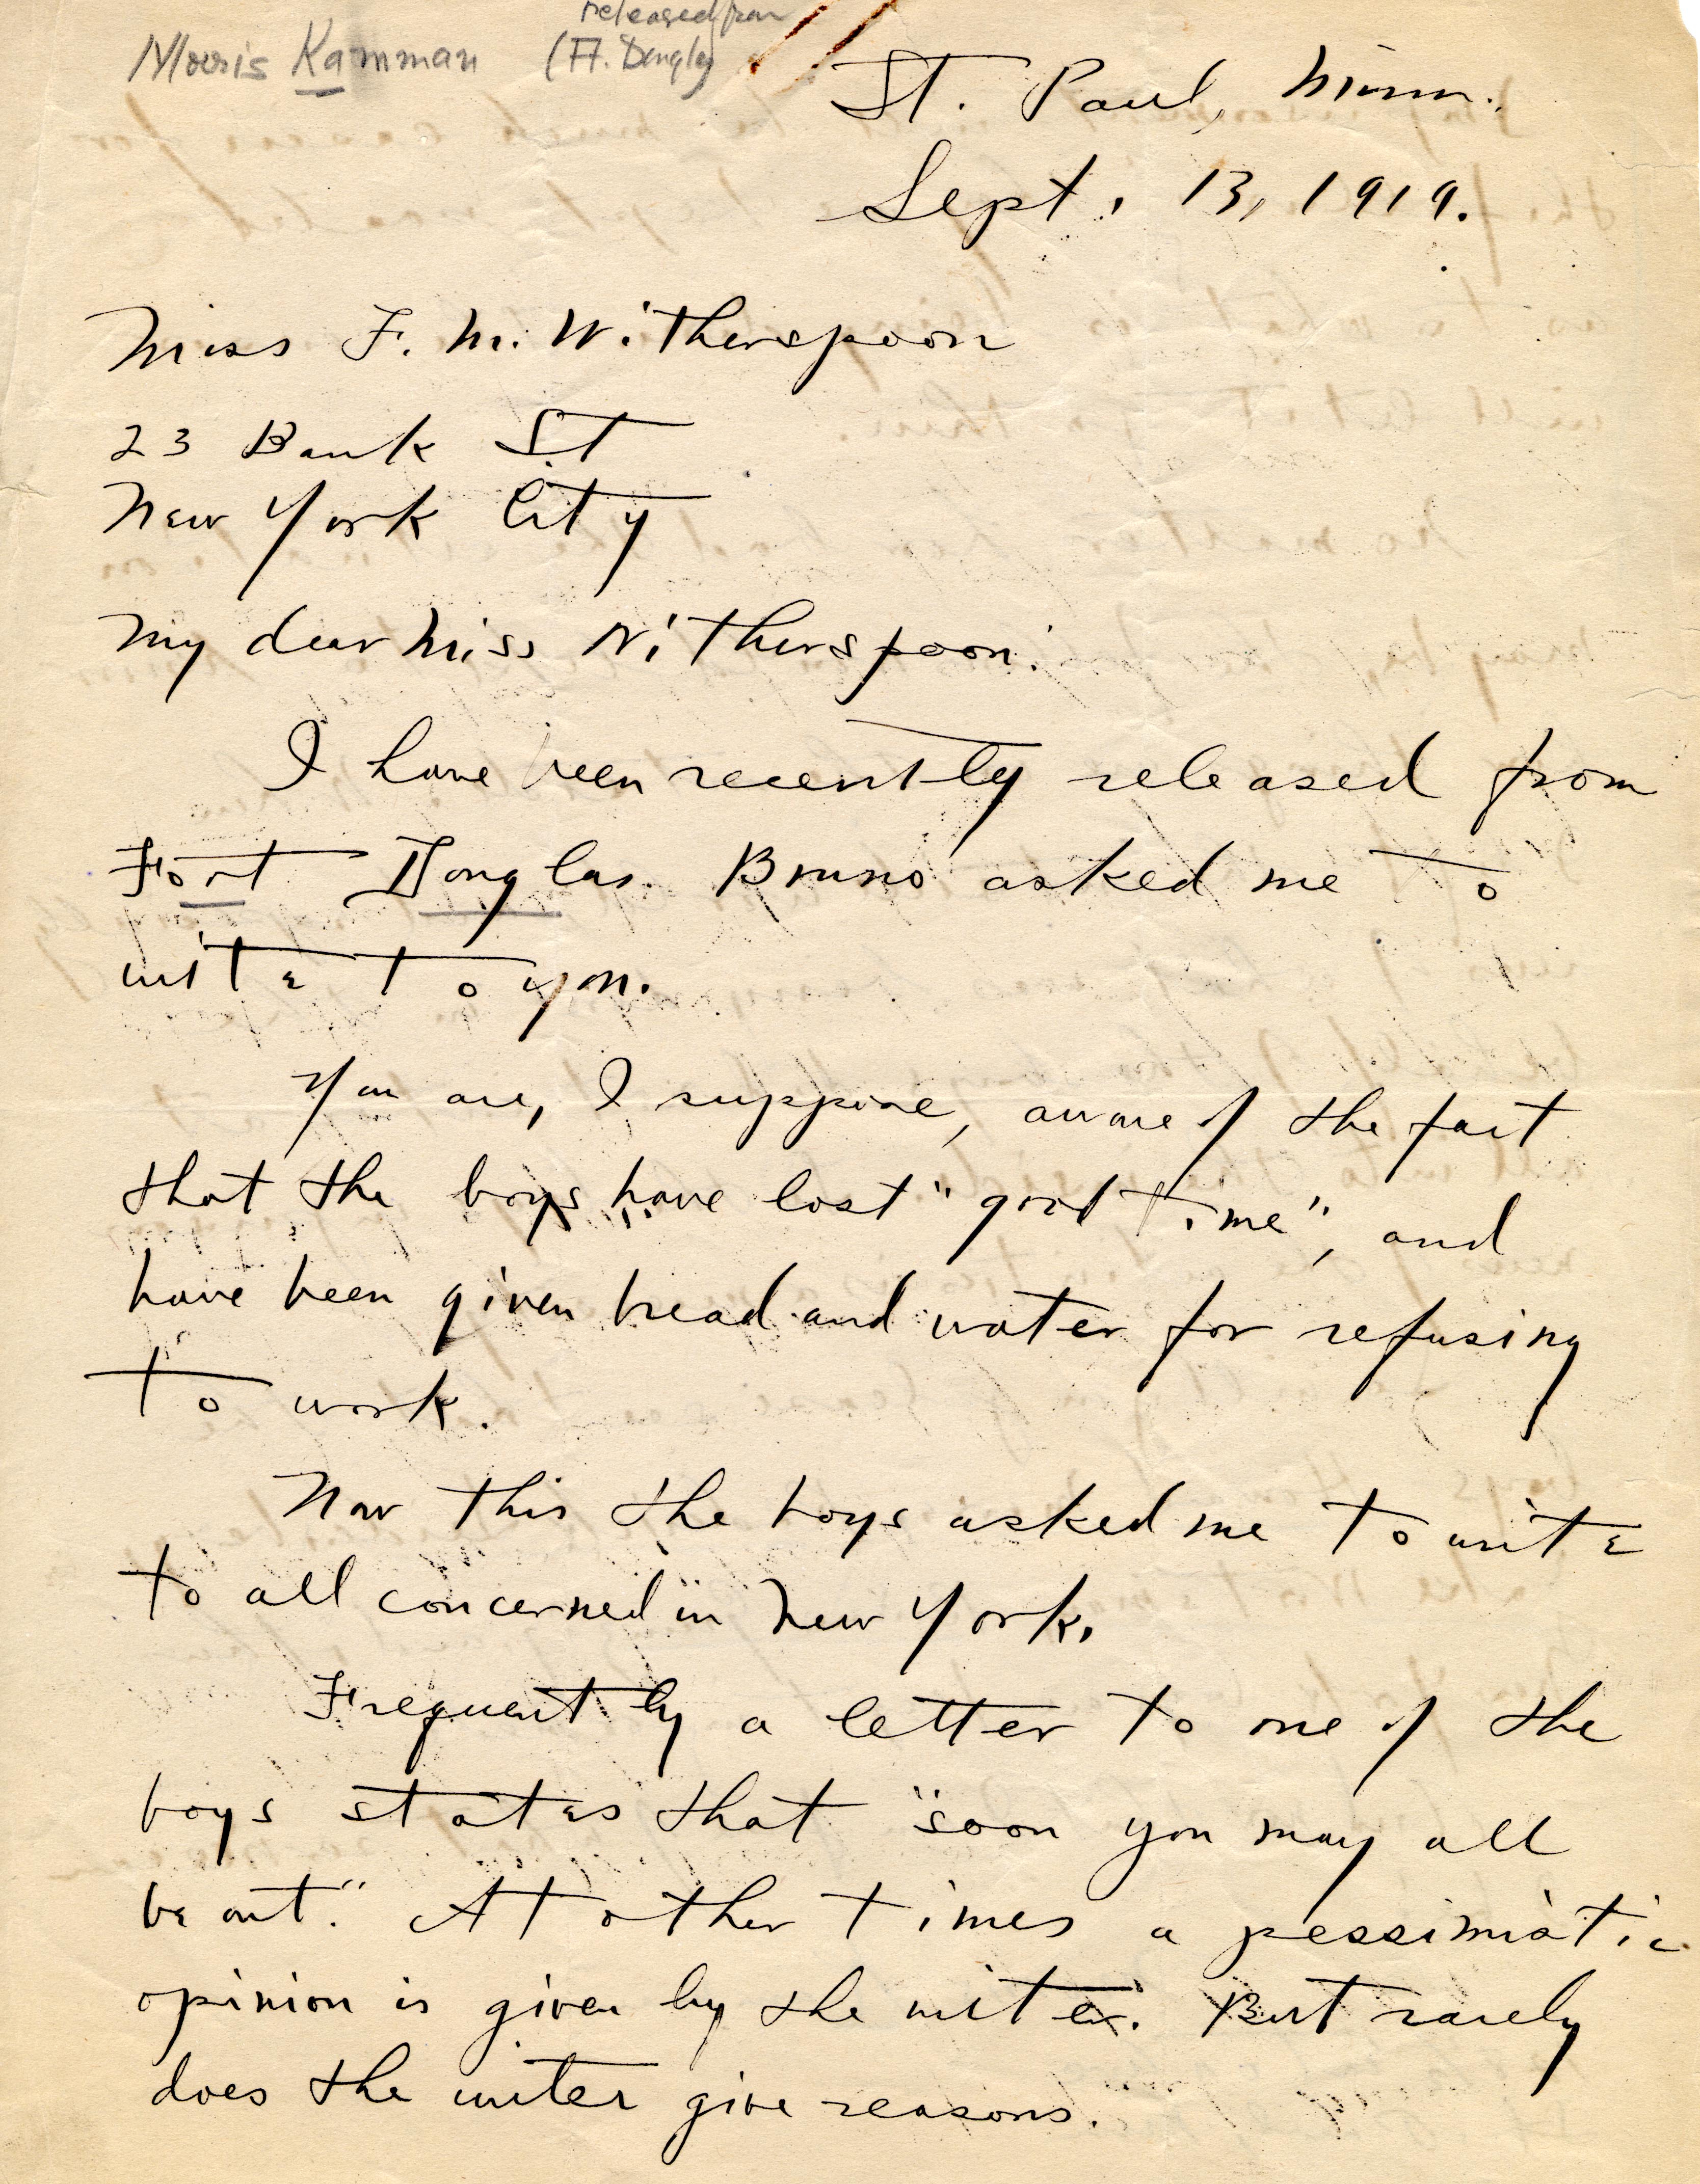 released from
Morris Kamman (Ft. Douglas)
St. Paul, Minn.
Sept. 13, 1919.
Miss F. M. Witherspoon
23 Bank St
New York City
My dear Miss Witherspoon:
I have been recently released from
Fort Douglas. Bruno asked me to
write to you.
You are, I suppose, aware of the fact
that the boys have lost "good time", and
have been given bread and water for refusing
to work.
Now this the boys asked me to write
to all concerned in New York.
Frequently a letter to one of the
boys states that "soon you may all
be out." At other times a pessimistic
opinion is given by the writer. But rarely
does the writer give reasons.